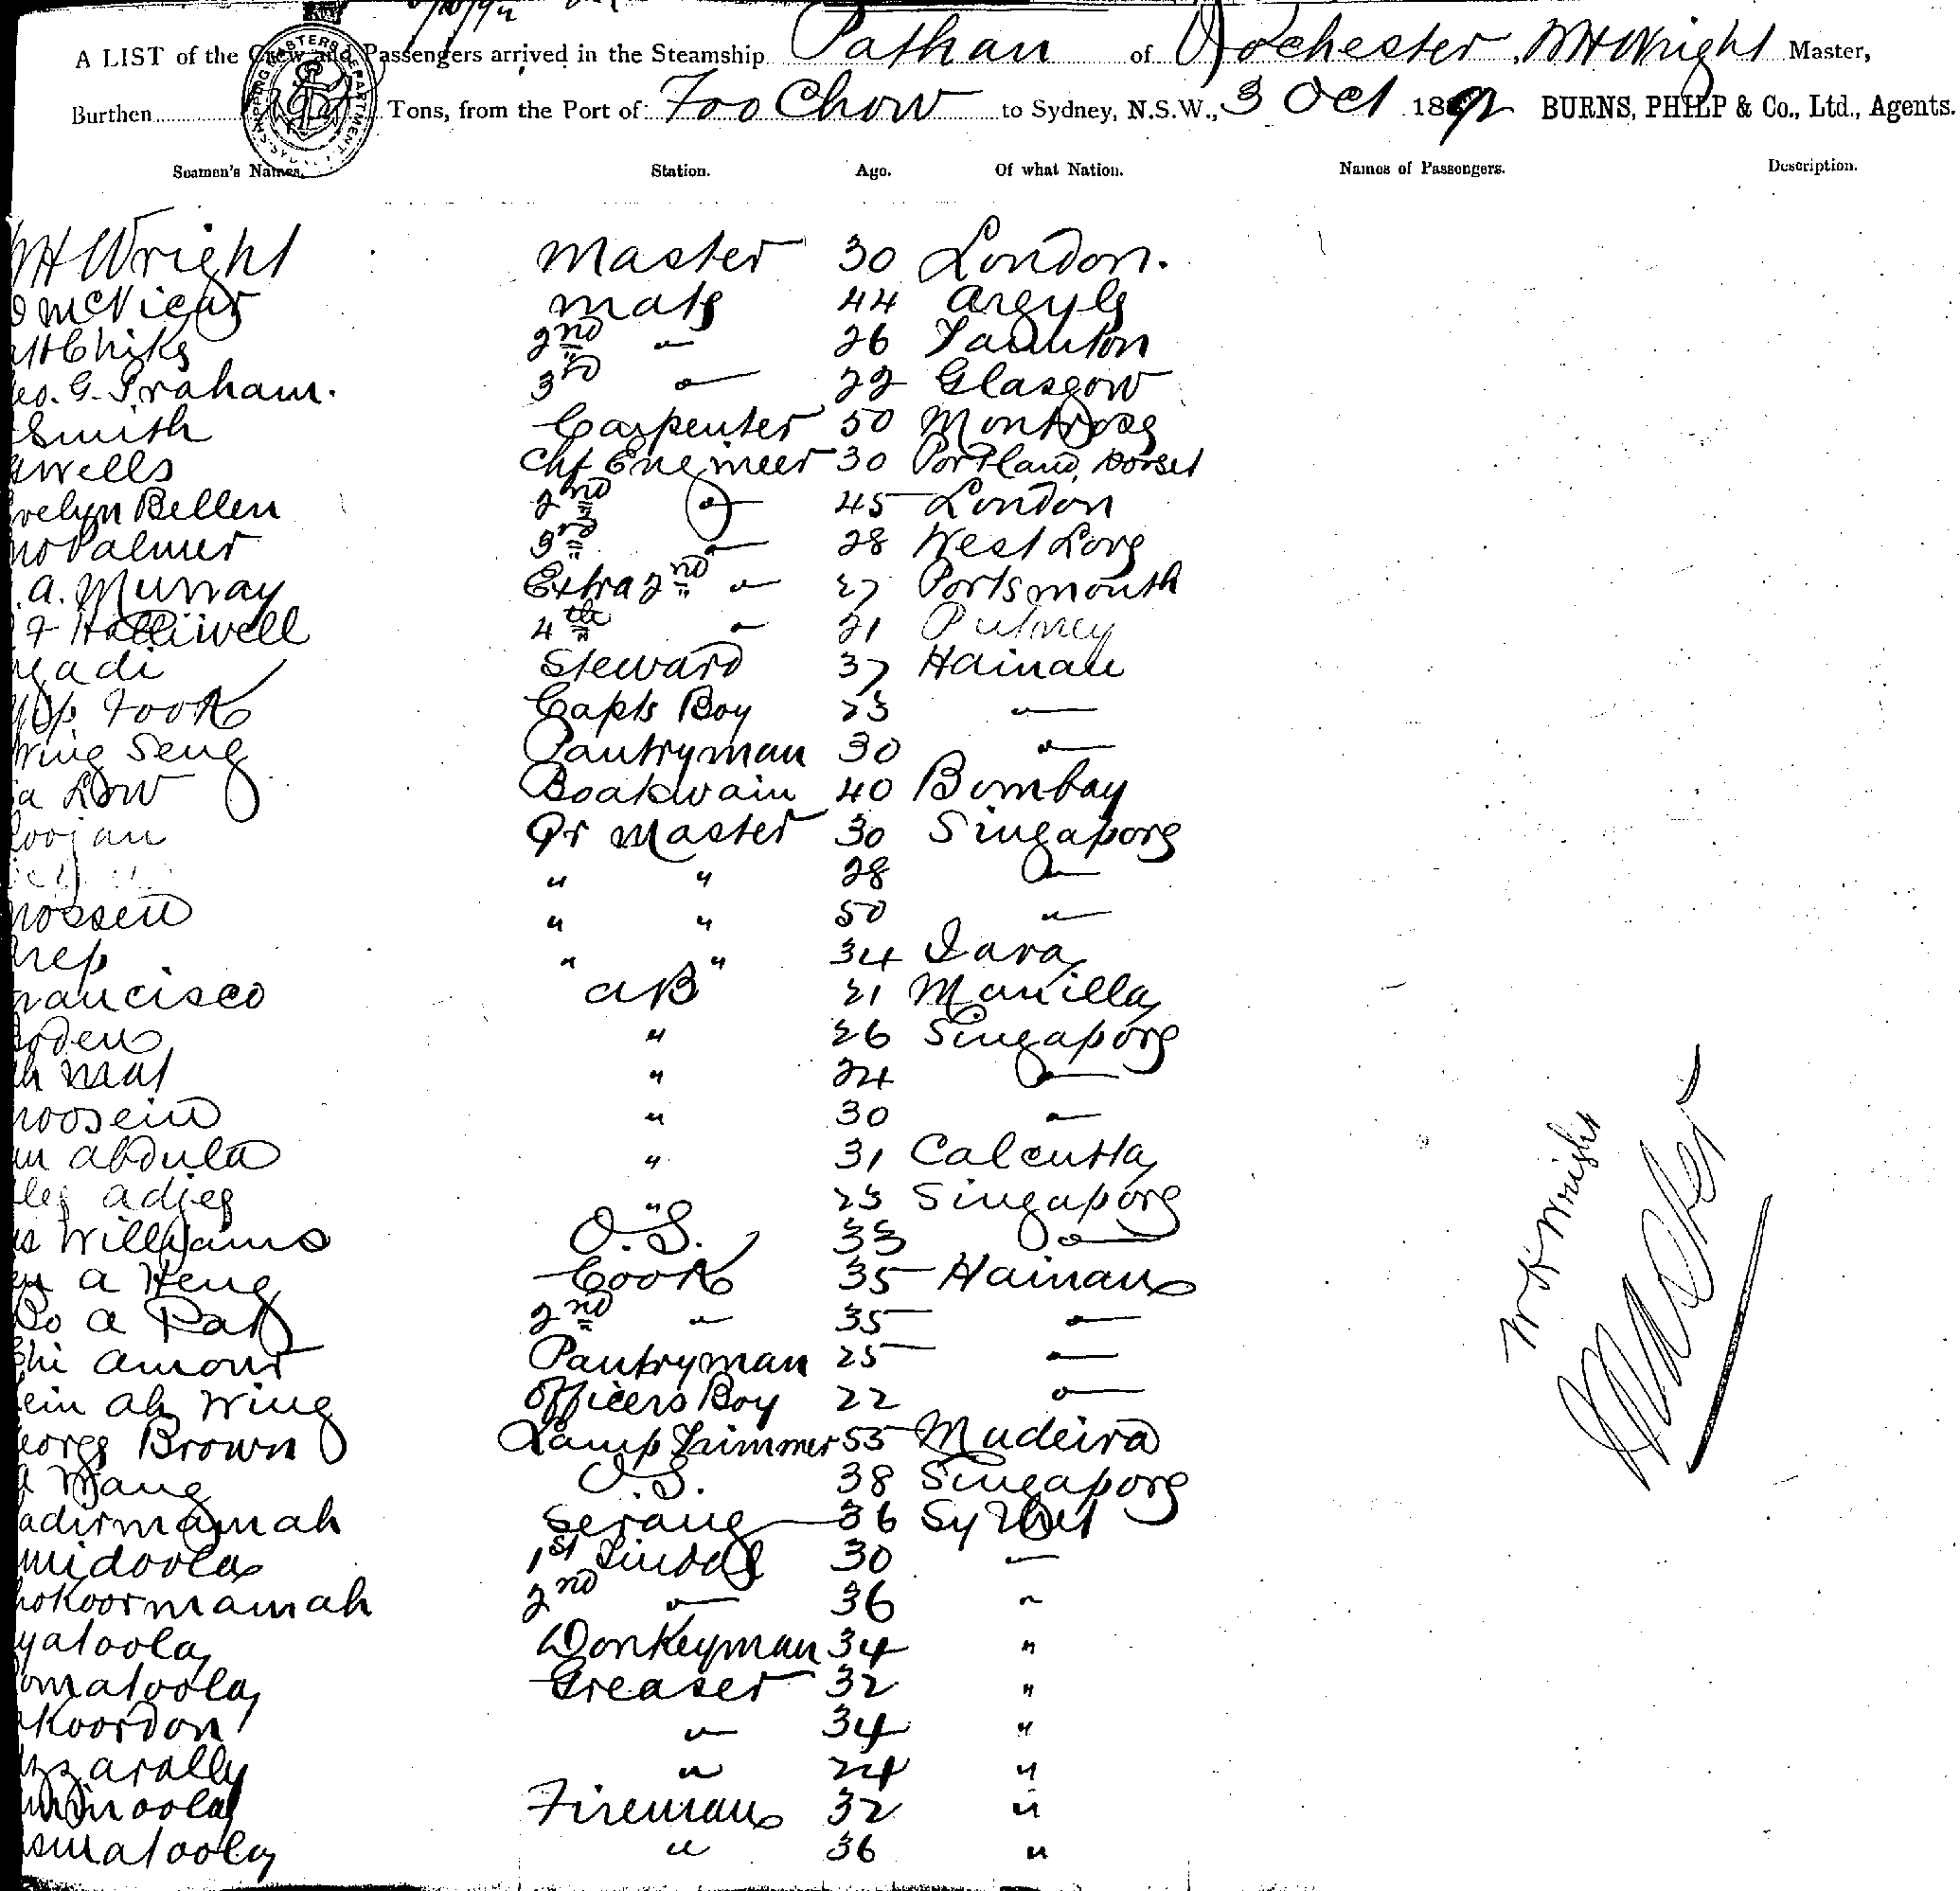 A LIST of the Crew and Passengers arrived in the Steamship Pathan of Rochester, WH Wright Master,
Burthen Tons, from the Port of Foo Chow to Sydney, N.S.W., 3 Oct 1892 BURNS, PHILP & Co., Ltd., Agents.
Seamen's Names. Station. Age. Of what Nation. Names of Passengers. Description.
WH Wright Master 30 London.
McVicar Mate 44 Argyle
2nd " 26 Taunton
eo. G. Graham. 3rd " 22 Glasgow
Smith Carpenter 50 Montrose
Wells Chf Engineer 30 Portland, Dorset
velyn Bellen 2nd " 45 London
Palmer 3rd " 28 West Lore
A. Murray Extra 2nd " 27 Portsmouth
Halliwell 4th " 21 Putney
adi Steward 37 Hainan
Fook Capts Boy 23 "
Wing Seng Pantryman 30 "
a Low Boatswain 40 Bombay
oojan Qr Master 30 Singapore
" " 28 "
hossein " " 50 "
rep " " 34 Java
rancisco AB 21 Manilla
oden " 26 Singapore
h mat " 24 "
hoosein " 30 "
abdula " 31 Calcutta
adjee " 23 Singapore
s Williams O.S. 33 "
a Heng Cook 35 Hainan
o a Pat 2nd " 35 "
hi amour Pantryman 25 "
ein ah Wing Officers Boy 22 "
eorge Brown Lamp Trimmer 55 Madeira
a Wang O.S. 38 Singapore
adirmamah Serang 36 Sylhet
midoola 1st Tindal 30 "
hokoormamah 2nd " 36 "
yatoola Donkeyman 34 "
omatoola Greaser 32 "
koordon " 34 "
zzarally " 24 "
minoola Fireman 32 "
smatoola " 36 "
WH Wright
Master